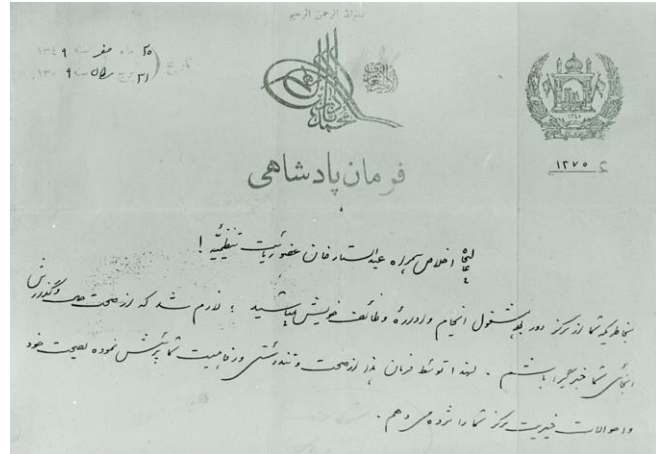 بسم الله الرحمن الرحیم
تاریخ
۲۵ ماه صفر سنه ۱۳۴۹
۳۱ سنه ۱۳۰۹
۱۲۷۵
فرمان پادشاهی
اخلاص همراه عبدالستار خان عضو ریاست تنظیمیه !
بخاطریکه شما از مرکز دور بوده مشغول انجام و اداره وظائف خویش میباشید ؛ لازم شد که از صحت مندی و گذارش
اینجائی شما خبرگیرا باشم . لهذا توسط فرمان هذا از صحت و تندرستی و رفاهیت شما پرسش نموده بصحت خود
و احوالات خیریت مرکز شما را مژده می دهم .